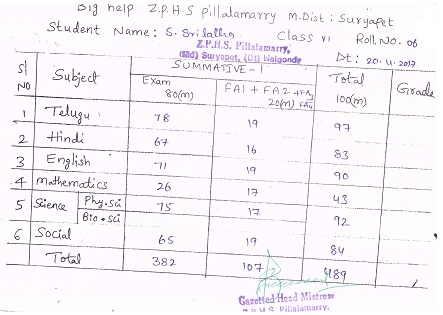 Big help Z.P.H.S Pillalamarry M.Dist: Suryapet
Student Name: S. Srilatha Class VI Roll No. 06
Z.P.H.S. Pillalamarry,
(Md) Suryapet, (Dt) Nalgonda
Dt: 20-4-2017
Sl NO Subject SUMMATIVE-1 Total 100(m) Grade
Exam 80(m) FA1 + FA2 + FA3 FA4 20(m)
1 Telugu 78 19 97
2 Hindi 67 16 83
3 English 71 19 90
4 Mathematics 26 17 43
5 Science Phy.sci 75 17 92
Bio.sci
6 Social 65 19 84
Total 382 107 489
Gazetted Head Mistress
Z.P.H.S. Pillalamarry.